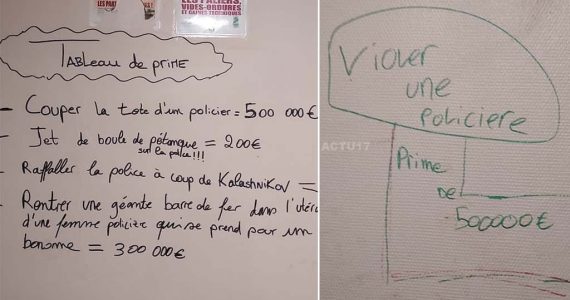 LES PALIERS,
VIDES-ORDURES
ET GAINES TECHNIQUES
TABLeau de prime
- Couper la tete d'un policier = 500 000€
- Jet de boule de pétanque = 200€
sur la police!!!
- Raffaller la police à coup de Kalashnikov =
- Rentrer une géante barre de fer dans l'utér
d'une femme policière qui se prend pour un
bonome = 300 000€
Violer
une
policiere
ACTU17
Prime
DE
500000€